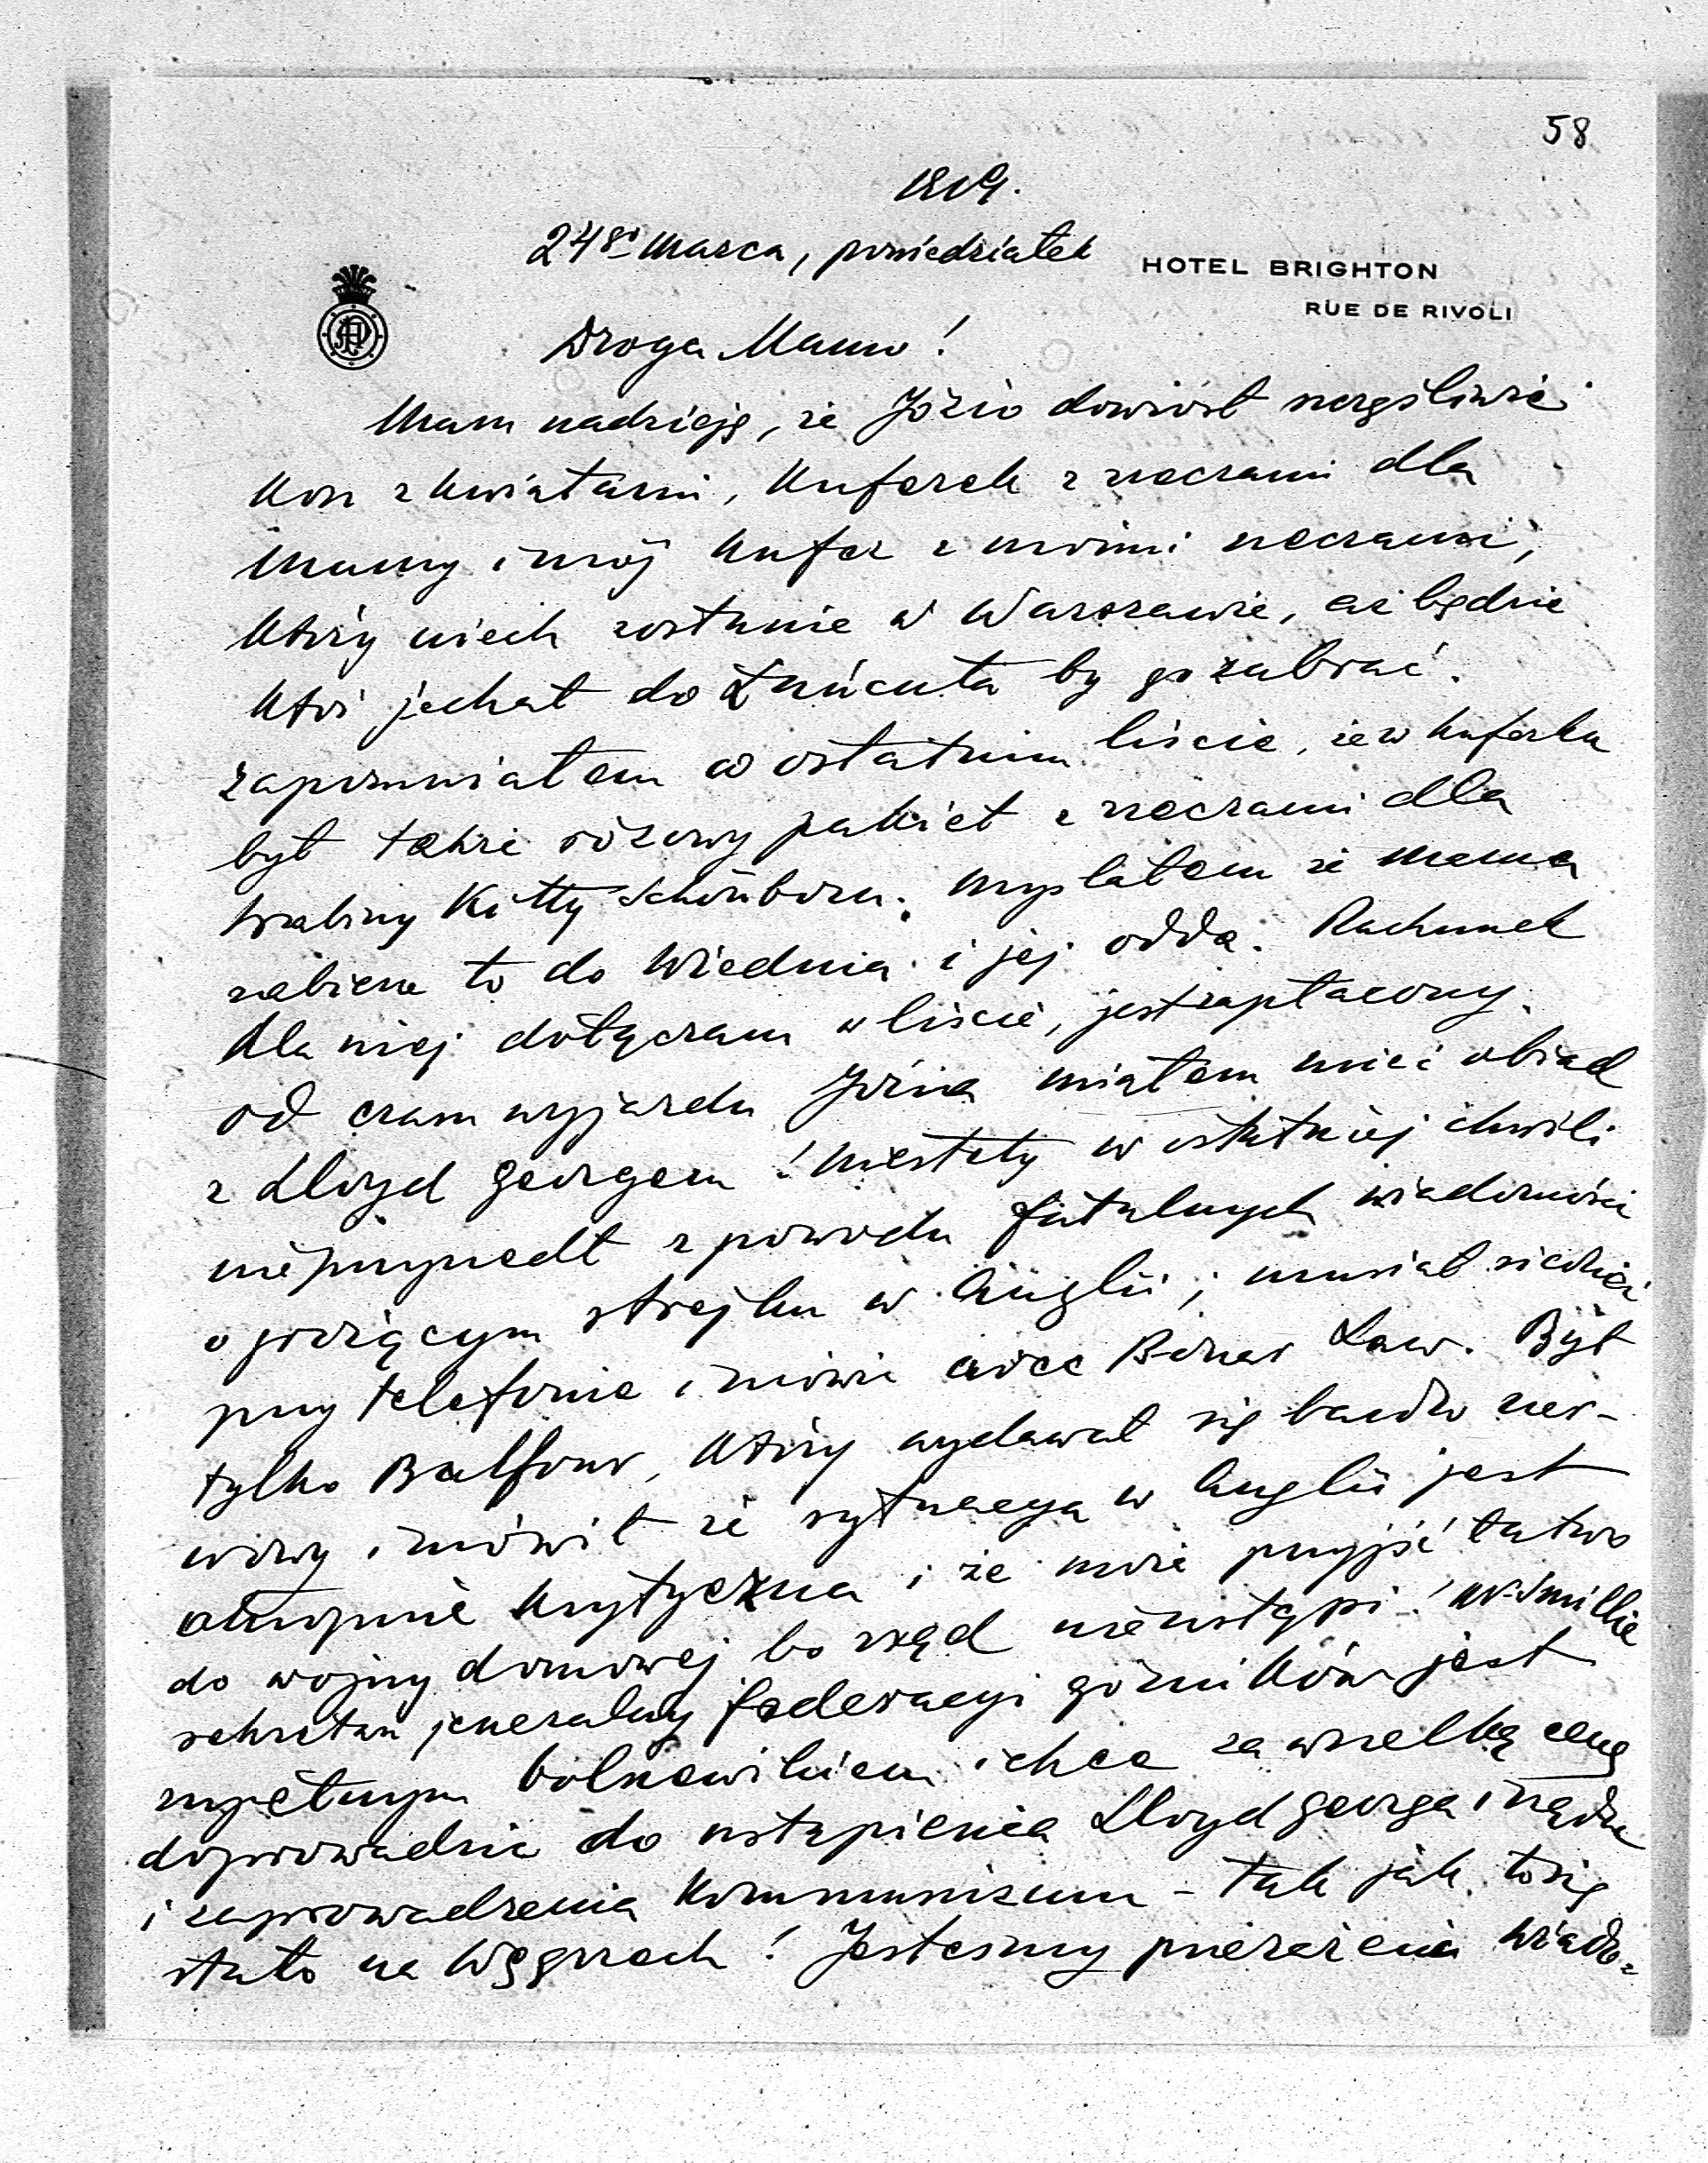 58
1919.
24go Marca, poniedziałek
HOTEL BRIGHTON
RUE DE RIVOLI
Droga Mamo!
Mam nadzieję, że Józio dowiózł szczęśliwie
kosz z kwiatami, kuferek z rzeczami dla
Mamy i mój kufer z moimi rzeczami,
który niech zostanie w Warszawie, aż będzie
ktoś jechał do Łańcuta by go zabrać.
Zapomniałem w ostatnim liście, że w kuferku
był także różowy pakiet z rzeczami dla
hrabiny Kitty Schönborn. Myślałem że Mama
zabierze to do Wiednia i jej odda. Rachunek
dla niej dołączam w liście, jest zapłacony.
Od czasu wyjazdu Józia miałem mieć obiad
z Lloyd Georgem! Niestety w ostatniej chwili
nie przyszedł z powodu fatalnych wiadomości
o grożącym strejku w Anglii; musiał siedzieć
przy telefonie i mówić avec Bonar Law. Był
tylko Balfour, który wydawał się bardzo ner-
wowy i mówił że sytuacya w Anglii jest
okropnie krytyczna i że może przyjść łatwo
do wojny domowej bo rząd nie ustąpi! Mr Smillie
sekretarz jeneralny federacyi górników jest
zupełnym bolszewikiem i chce za wszelką cenę
doprowadzić do ustąpienia Lloyd George i rządu
i zaprowadzenia Kommunizmu - tak jak to się
stało na Węgrzech! Jesteśmy przerażeni wiado-